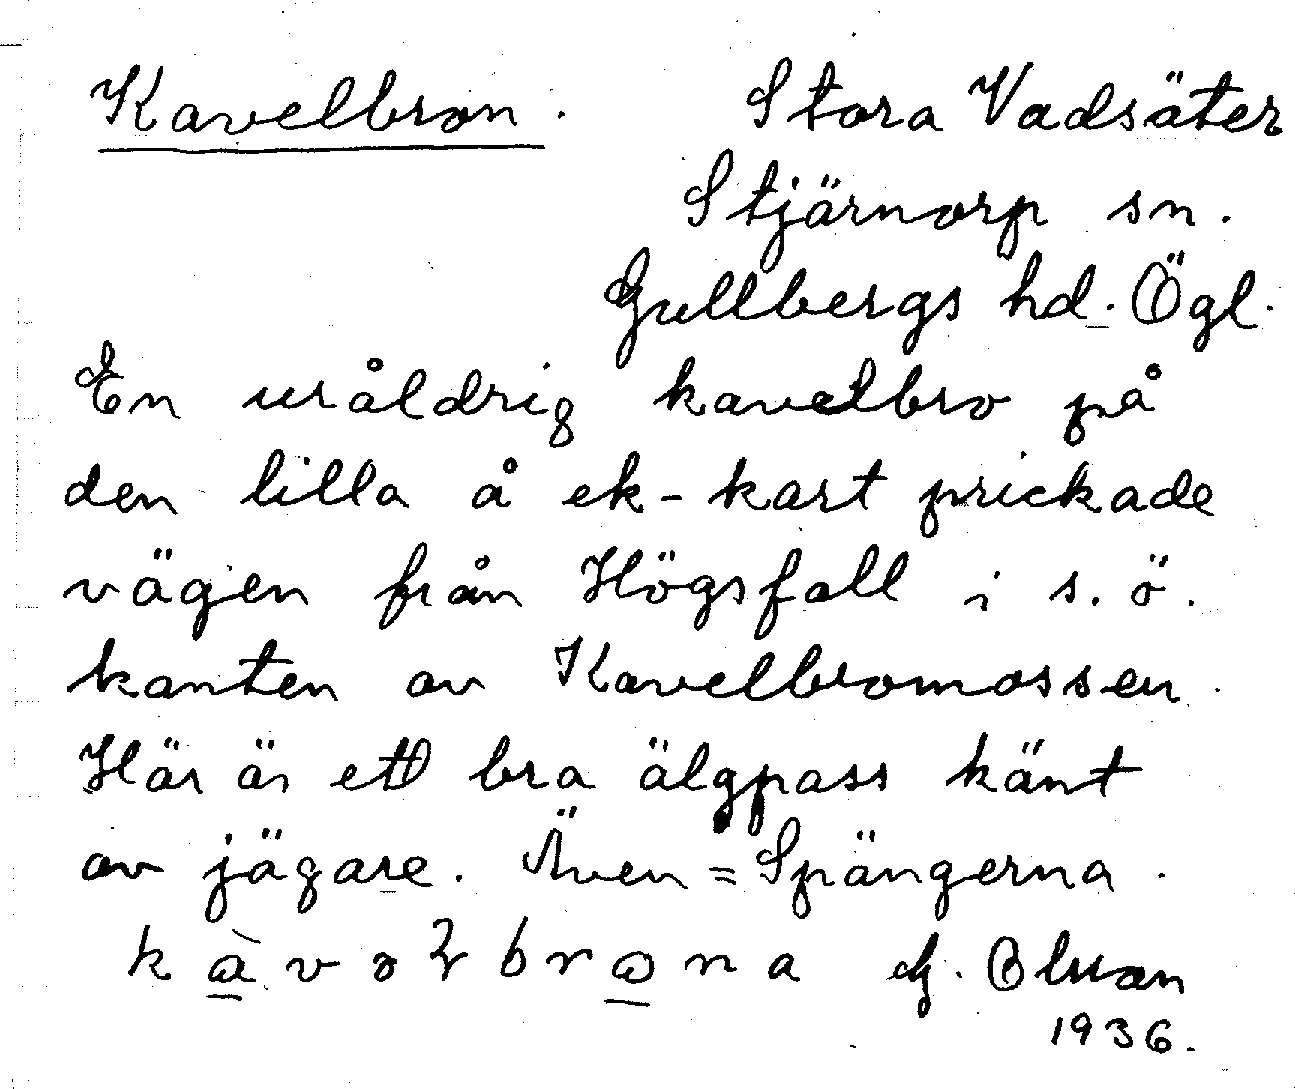 Kavelbron. Stora Vadsäter
Stjärnorp sn.
Gullbergs hd. Ögl.
En uråldrig kavelbro på
den lilla å ek-kart prickade
vägen från Högsfall i s.ö.
kanten av Kavelbromossen.
Här är ett bra älgpass känt
av jägare. Även = Spängerna.
G.
1936.